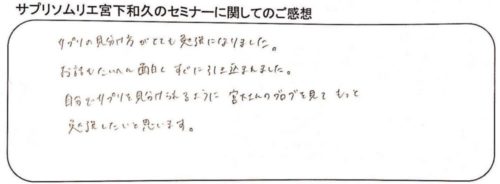 サプリソムリエ宮下和久のセミナーに関してのご感想
サプリの見分け方がとても勉強になりました。
お話もたいへん面白く すぐに引き込まれました。
自分でサプリを見分けられるように 宮下さんのブログを見て もっと
勉強したいと思います。